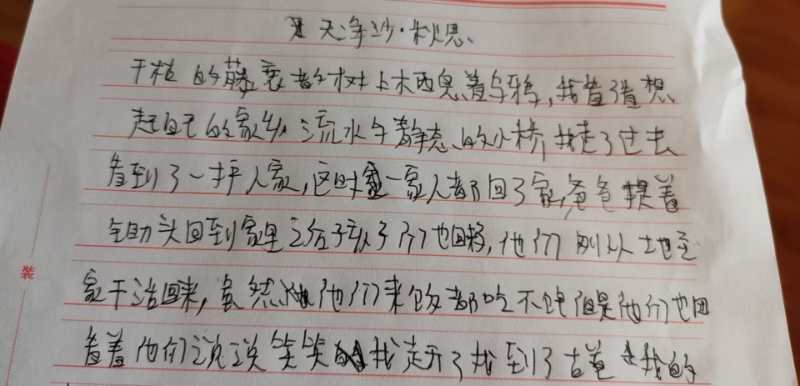 天净沙·秋思
干枯的藤衰老的树上木栖息着乌鸦,我看了看想
起自己的家乡流水与静态的小桥我走了过去
看到了一户人家,这时一家人都回了家,爸爸提着
锄头回到家里之后孩子们也回来,他们刚从土地至
家干活回来,虽然他们来饭都吃不饱但是他们也因
看着他们说说笑笑我走开了我到了古道 我的
装